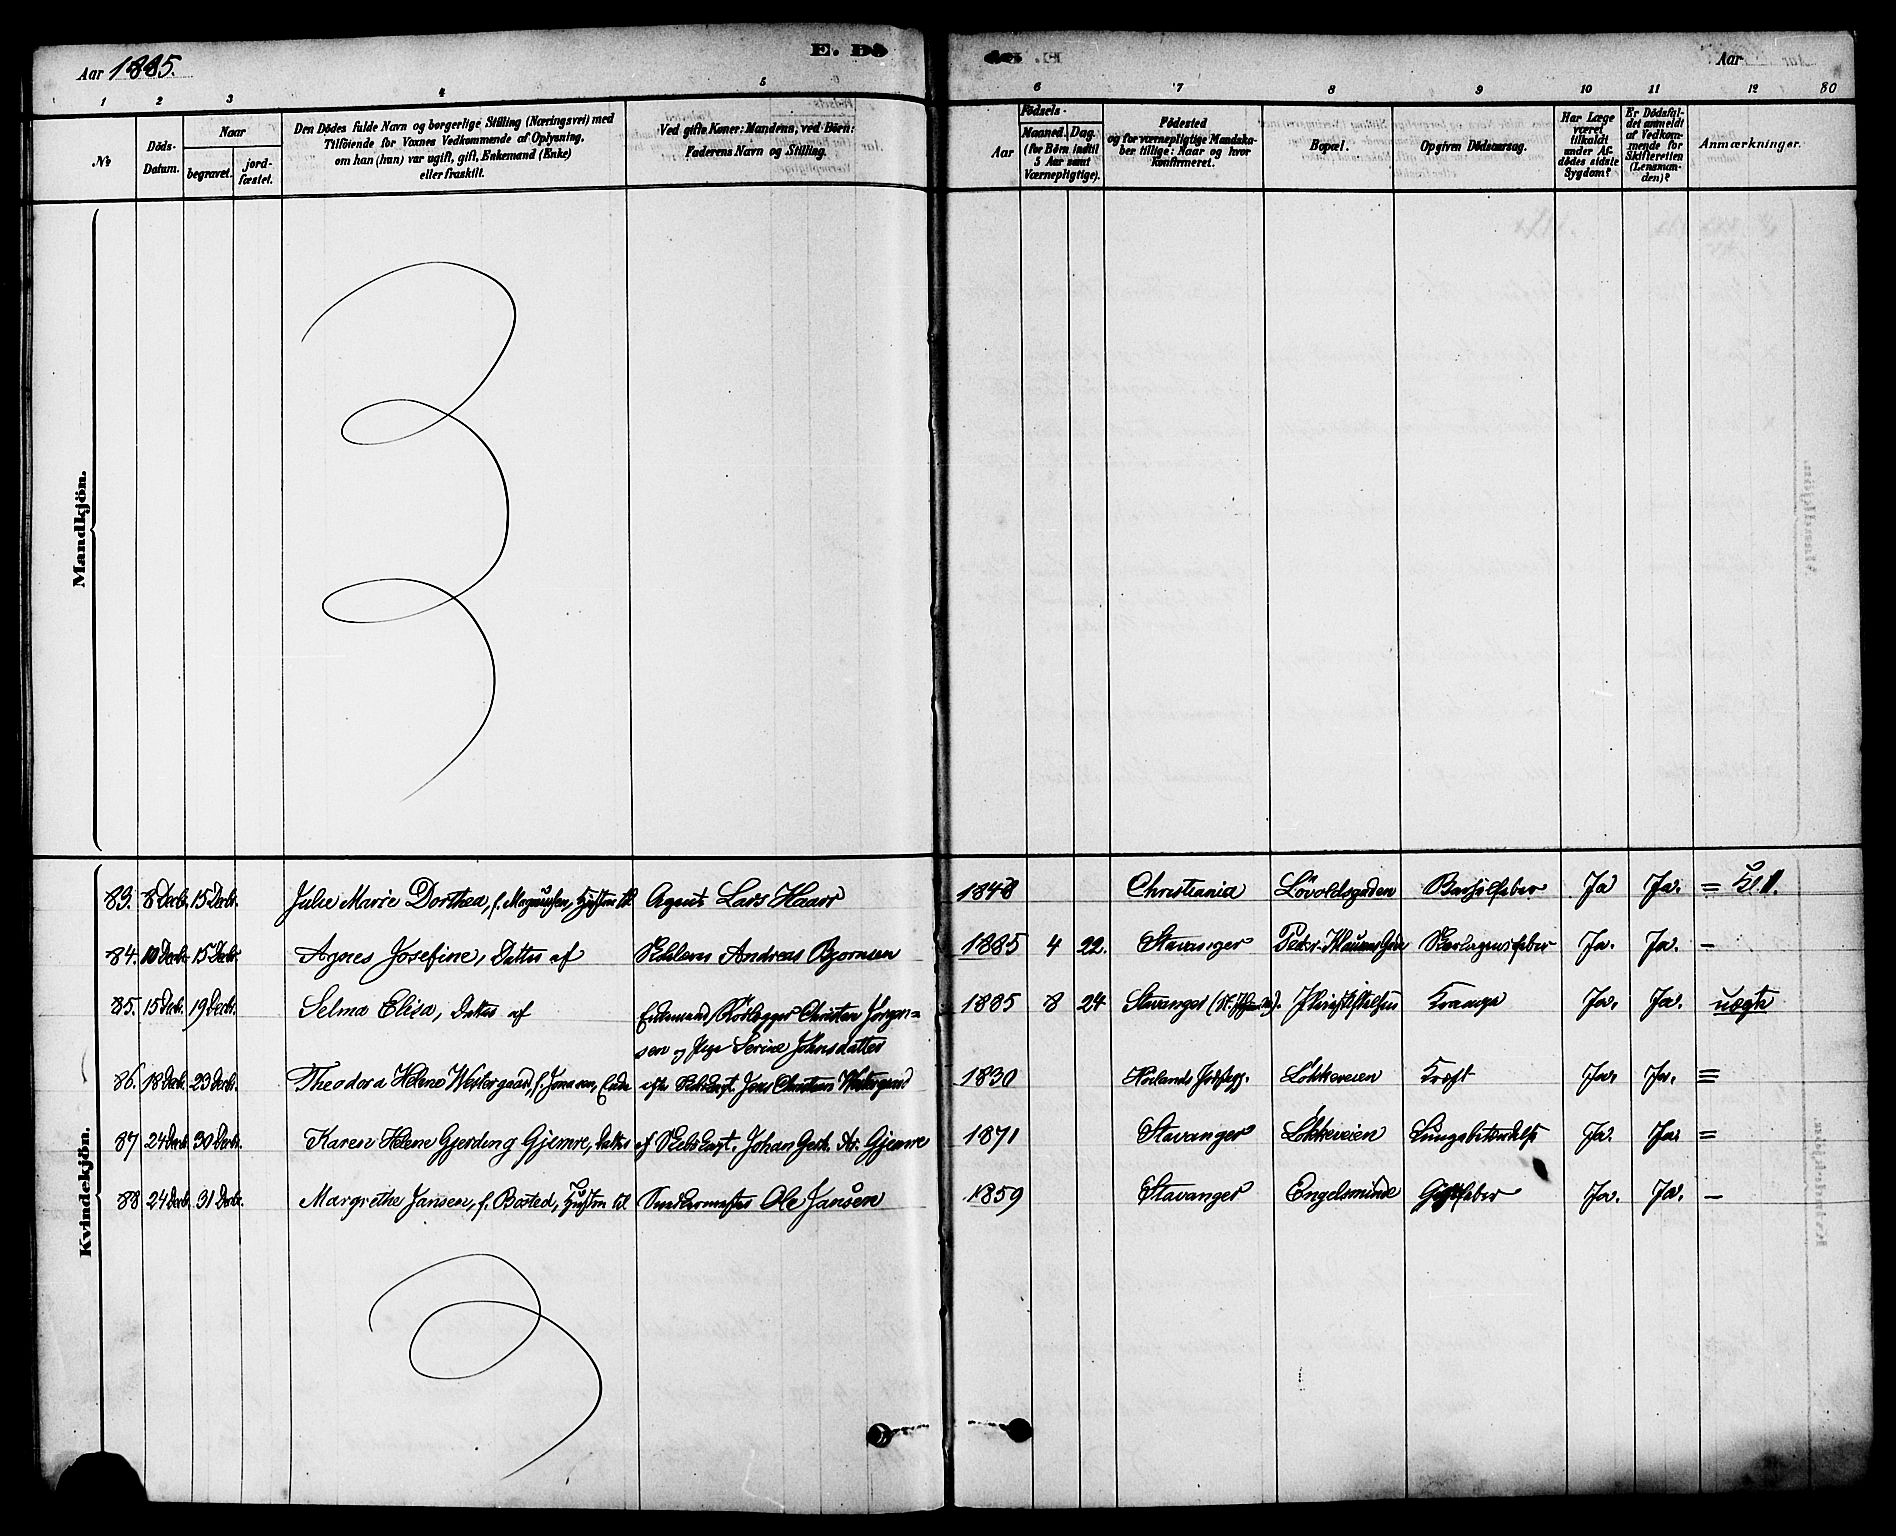 Aar 1885.
E. Dö
Aar
1 2 3 4 5 6 7 8 9 10 11 12 80
No
Döds-Datum.
Naar
begravet.
jord-fæstet.
Den Dödes fulde Navn og borgerlige Stilling (Næringsvei) med
Tilföiende for Voxnes Vedkommende af Oplysning,
om han (hun) var ugift, gift, Enkemand (Enke)
eller fraskilt.
Ved gifte Koner: Mandens, ved Börn:
Faderens Navn og Stilling.
Födsels-
Aar
Maaned. Dag.
(for Börn indtil
5 Aar samt
Værnepligtige).
Födested
og for værnepligtige Mandska-
ber tillige: Naar og hvor
konfirmeret.
Bopæl.
Opgiven Dödsaarsag.
Har Læge
været
tilkaldt
under Af-
dödes sidste
Sygdom?
Er Dödsfal-
det anmeldt
af Vedkom-
mende for
Skifteretten
(Lensman-
den)?
Anmærkninger.
Mandkjön.
Kvindekjön.
83. 8 Decb. 15 Decb. Julie Marie Dorthea, f. Magnussen, Hustru til Agent Lars Haaver 1848 Christiania Lövoldsgaden Barselfeber Ja Ja. =
84. 10 Decb. 15 Decb. Agnes Josefine, Datter af Andreas Bjornsen 1885 4 22. Stavanger Peder Klausens Gade Ja. Ja. -
85. 15 Decb. 19 Decb. Selma Elisa, Datter af Enkemand Christian Jörgen=
sen og Pige Serine Johnsdatter 1885 8 24 Stavanger Krampe Ja. Ja. uægte
86. 18 Decb. 23 Decb. Theodora Helene Westergaard, f. Jonassen, Enke efter Skibskapt. Jens Christian Westergaard 1830 Lökkeveien Kræft Ja. Ja. =
87 24 Decb. 30 Decb. Karen Helene Gjerding Gjemre, Datter af Skibskapt. Johan Geth. Ar. Gjemre 1871 Stavanger Lökkeveien Lungebetændelse Ja. Ja. =
88 24 Decb. 31 Decb. Margrethe Jansen, f. Basted, Hustru til Snedkermester Ole Jansen 1859 Stavanger Engelsminde Ja. Ja. -